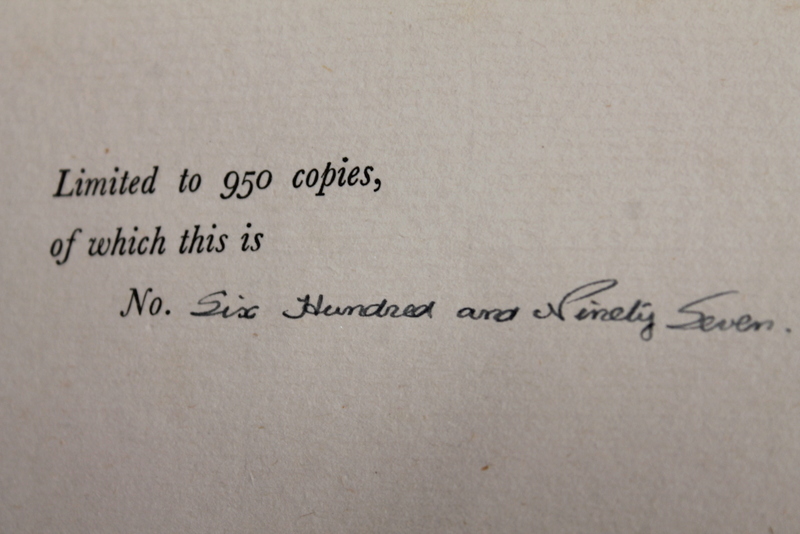 Limited to 950 copies,
of which this is
No. Six Hundred and Ninety Seven.